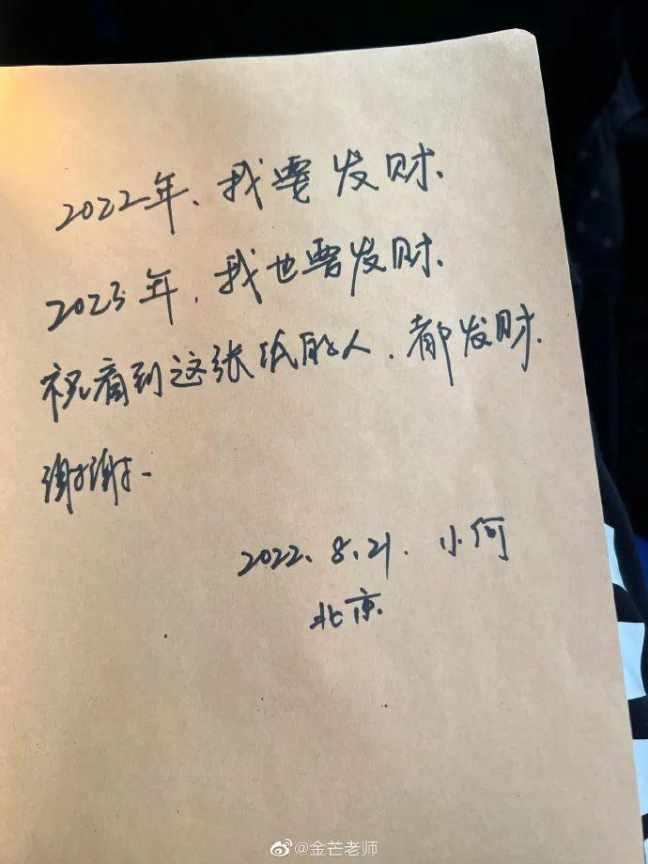 2022年、我要发财.
2023年,我也要发财.
祝看到这张纸的人.都发财.
谢谢.
2022.8.21.小何
北京
@金芒老师